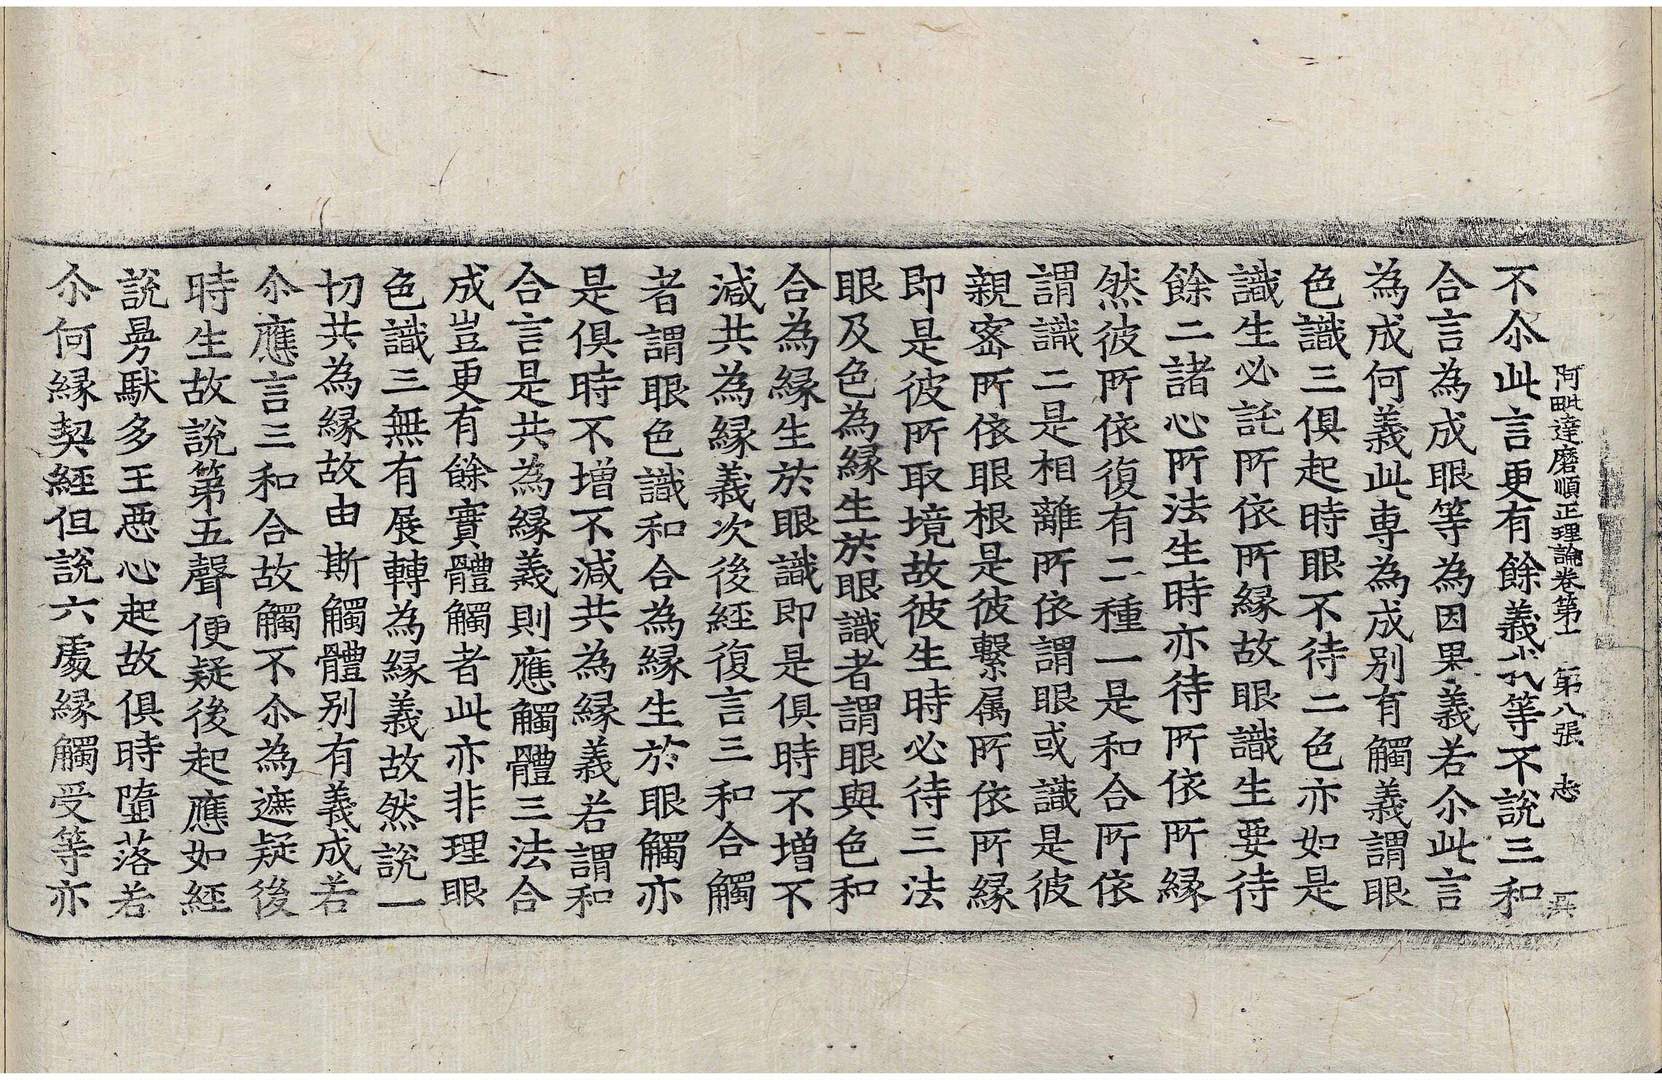 阿毗達磨順正理論卷第十一 第八張 志
不尒此言更有餘義等不說三和
合言為成眼等為因果義若尒此言
為成何義此專為成別有觸義謂眼
色識三俱起時眼不待二色亦如是
識生必託所依所緣故眼識生要待
餘二諸心所法生時亦待所依所緣
然彼所依復有二種一是和合所依
謂識二是相離所依謂眼或識是彼
親密所依眼根是彼繫属所依所緣
即是彼所取境故彼生時必待三法
眼及色為緣生於眼識者謂眼與色和
合為緣生於眼識即是俱時不增不
減共為緣義次後經復言三和合觸
者謂眼色識和合為緣生於眼觸亦
是俱時不增不減共為緣義若謂和
合言是共為緣義則應觸體三法合
成豈更有餘實體觸者此亦非理眼
色識三無有展轉為緣義故然說一
切共為緣故由斯觸體別有義成若
尒應言三和合故觸不尒為遮疑後
時生故說第五聲便疑後起應如經
說曼馱多王惡心起故俱時墮落若
尒何緣契經但說六處緣觸受等亦